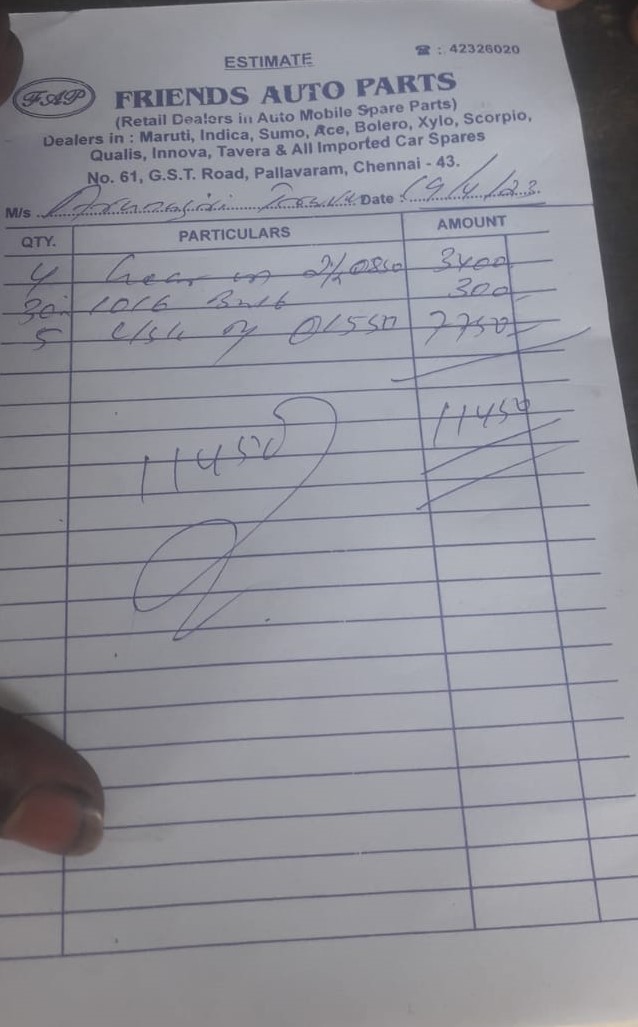 ESTIMATE
☎ : 42326020
FAP
FRIENDS AUTO PARTS
(Retail Dealers in Auto Mobile Spare Parts)
Dealers in : Maruti, Indica, Sumo, Ace, Bolero, Xylo, Scorpio,
Qualis, Innova, Tavera & All Imported Car Spares
No. 61, G.S.T. Road, Pallavaram, Chennai - 43.
M/s Date : 19/4/23
QTY. PARTICULARS AMOUNT
4 Gear 850 3400
30 Bulb 300
5 1550 7750
11450
11450